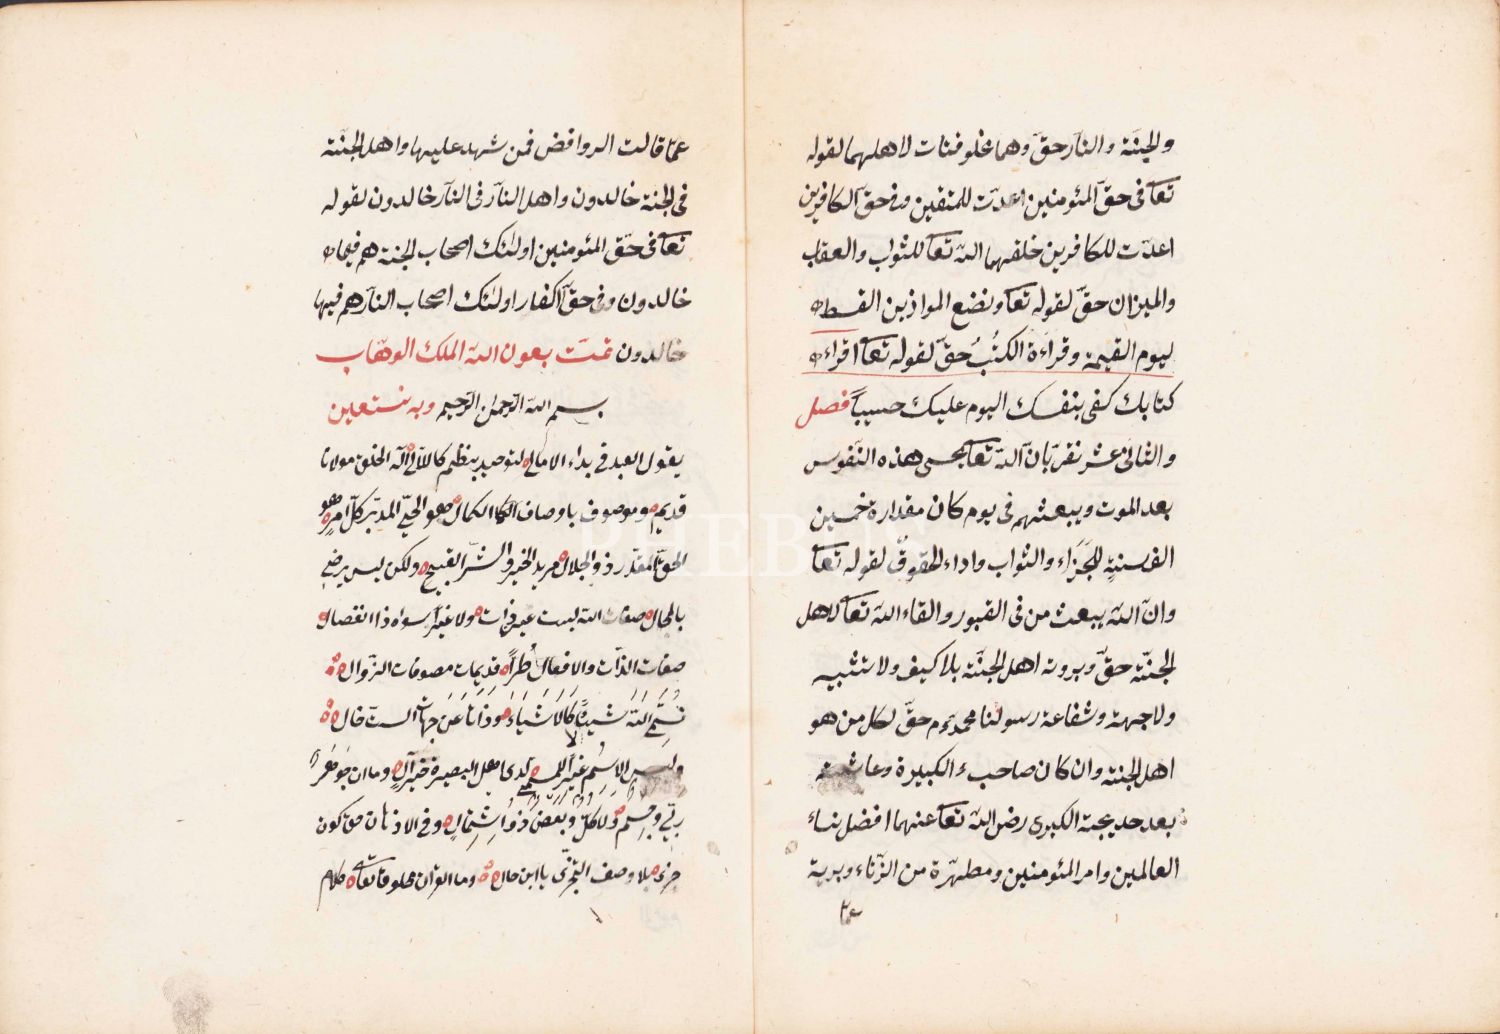 والجنّة والنار حقّ وهما مخلوقتان لاهلهما لقوله
تعا فى حقّ المئومنين اعدّت للمتقين وفى حقّ الكافرين
اعدّت للكافرين خلقهما الله تعا للثواب والعقاب
والميزان حقّ لقوله تعا ونضع الموازين القسط
ليوم القيمة وقراءة الكتُب حقّ لقوله تعا اقراء
كتابك كفى بنفسك اليوم عليك حسيباً فصل
والثانى عشر نقرّ بانّ الله تعا يحيى هذه النّفوس
بعد الموت ويبعثهم فى يوم كان مقداره خمسين
الف سنةٍ للجَزاء والثواب واداء الحقوق لقوله تعا
وانّ الله يبعث من فى القبور والقاء الله تعا لاهل
الجنّة حقّ ويرونه اهل الجنّة بلا كيف ولا تشبيه
ولا جهة وشفاعة رسولنا محمد عم حقّ لكل من هو
اهل الجنة وان كان صاحب الكبيرة وعائشة
بعد خديجة الكبرى رضى الله تعا عنهما افضل نساء
العالمين وام المئومنين ومطهّرة من الزّناء وبرية
عمّا
عمّا قالت الروافض فمن شهد عليها واهل الجنّة
فى الجنة خالدون واهل النّار فى النّار خالدون لقوله
تعا فى حقّ المئومنين اولئك اصحاب الجنة هم فيها
خالدون وفى حقّ الكفار اولئك اصحاب النّار هم فيها
خالدون تمّت بعون الله الملك الوهّاب
بسم الله الرّحمن الرّحيم وبه نستعين
يقول العبد فى بداء الامالى لتوحيد بنظم كاللآلى اله الخلق مولانا
قديم وموصوف باوصاف الكمال هو الحيّ المدبّر كلّ امرٍ هو
الحقّ المقدّر ذو الجلال مريد الخير والشّر القبيح ولكن ليس يرضى
بالمحال صفات الله ليست عين ذات ولا غيرًا سواه ذا انفصال
صفات الذّات والافعال طُرّاً قديمات مصونات الزّوال
نُسَمِّى اللهَ شيئًا لا كَالاَشياء وذاتًا عَن جهات السّت خال
وليس الاِسمُ غيرًا للمسمّى لدى اهل البصيرة خير آل وما ان جوهرٌ
ربّي وجسم ولا كلّ وبعض ذو اشتمال وفى الاذهان حق كون
جزء بلا وصف التّجزّى يا ابن خال وما القران مخلوقا تعا كلام
PHEBUS